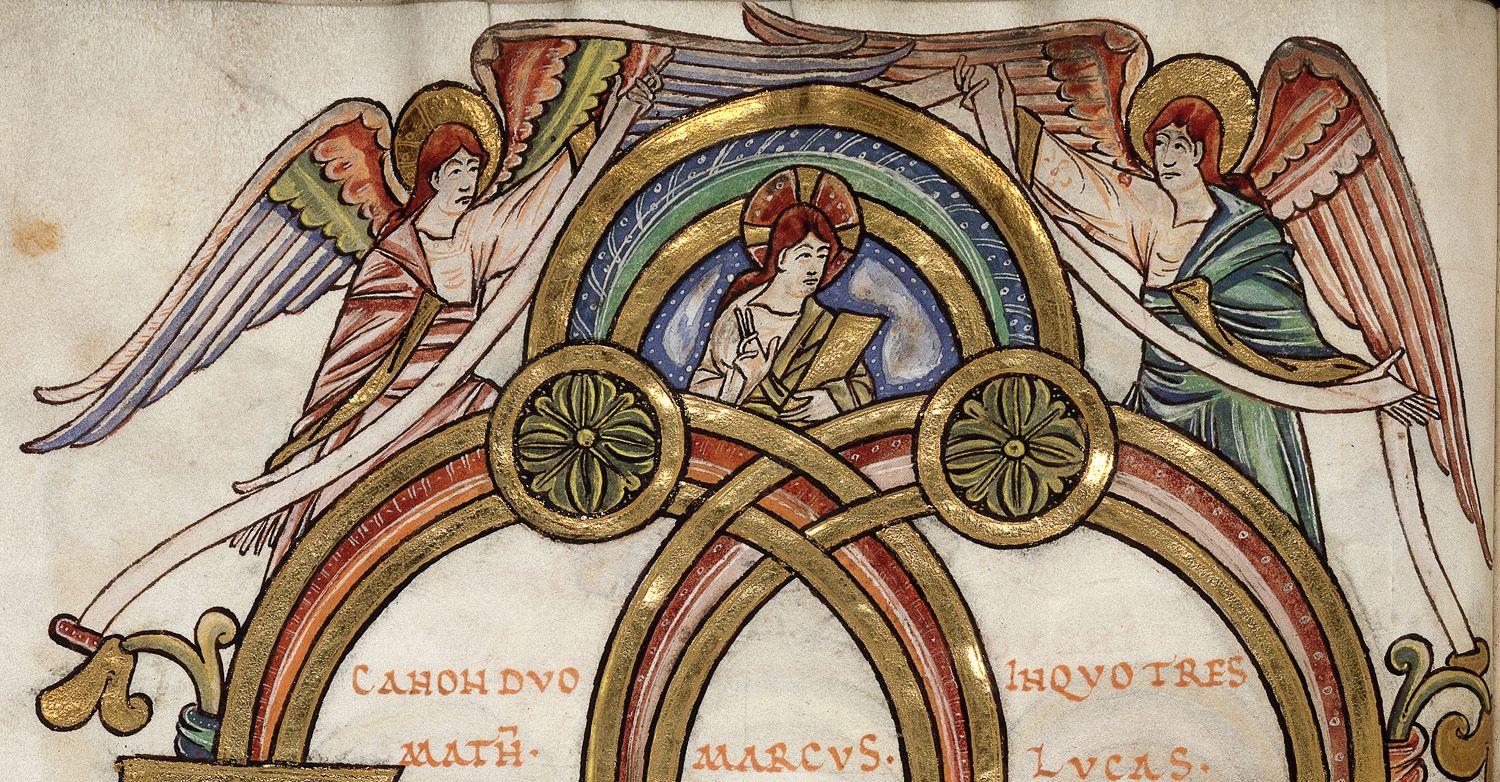 CANON DVO
IN QVO TRES
MATH̅·
MARCVS·
LVCAS·